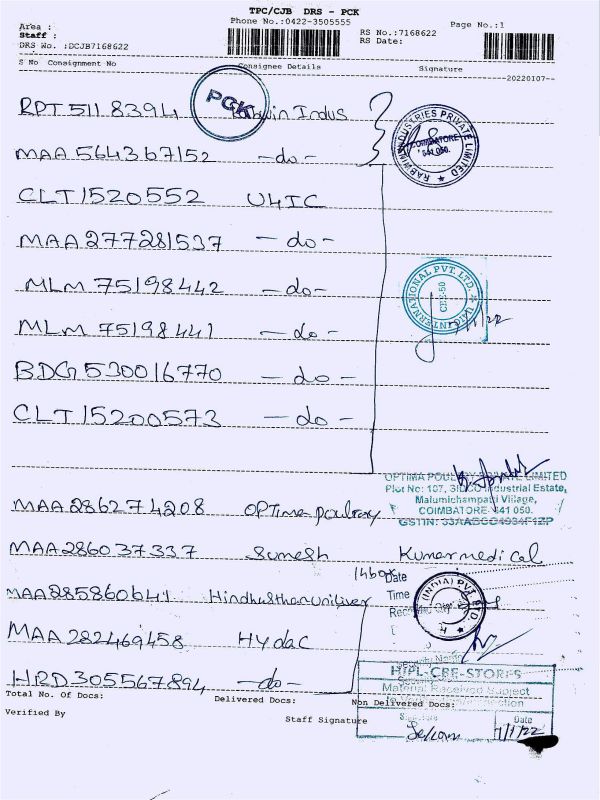 TPC/CJB DRS - PCK
Area : Phone No.:0422-3505555 Page No.:1
Staff : RS No.:7168622
DRS No. :DCJB7168622 RS Date:
S No Consignment No Consignee Details Signature
--20220107--
PCK
RPT 511 83941 Indus
MAA 564367152 -do-
RABWIN INDUSTRIES PRIVATE LIMITED
COIMBATORE
641 050.
CLT 1520552 U4IC
MAA 277281537 -do-
MLM 75198442 -do-
INTERNATIONAL PVT. LTD.
CBE-50
MLM 75198441 -do-
BDG 530016770 -do-
CLT 15200573 -do-
OPTIMA POULTRY PRIVATE LIMITED
Plot No: 107, SIDCO Industrial Estate,
Malumichampatti Village,
COIMBATORE-641 050.
MAA 286274208 OPTima poultry
MAA 286037337 Sumesh Kumar medical
14box
Date
Time
MAA 285860641 Hindhusthan uniliver
(INDIA) PVT. LTD.
MAA 282469458 HYdac
HRD 305567894 -do-
HIPL-CBE-STORES
Material Received Subject
Total No. Of Docs: Delivered Docs: Non Delivered Docs:
Verified By Staff Signature
Signature Date
1/1/22